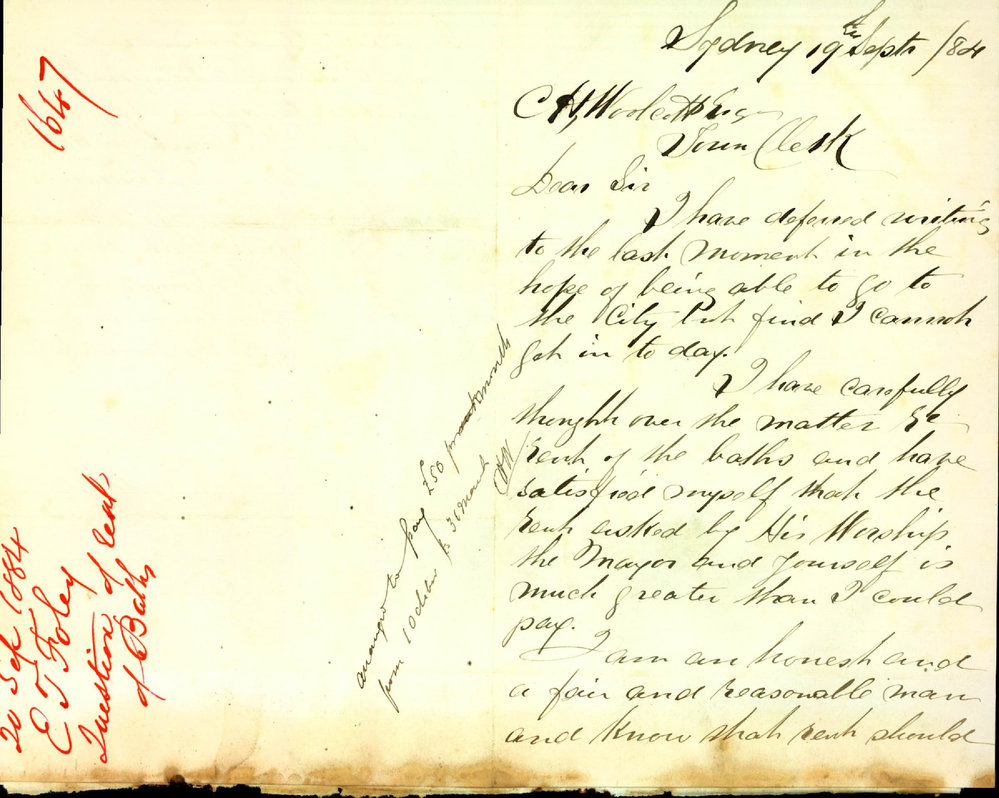 1647
20 Sep 1884
E T Foley
Question of rent
of Baths
arranges to pay £50 per month
from 1 October to 31 March
CHW
Sydney 19th Septr /84
C H Woolcott Esq
Town Clerk
Dear Sir
I have deferred writing
to the last moment in the
hope of being able to go to
the City but find I cannot
get in to day.
I have carefully
thought over the matter re
rent of the baths and have
satisfied myself that the
rent asked by His Worship
the Mayor and yourself is
much greater than I could
pay.
I am an honest and
a fair and reasonable man
and know that rent should